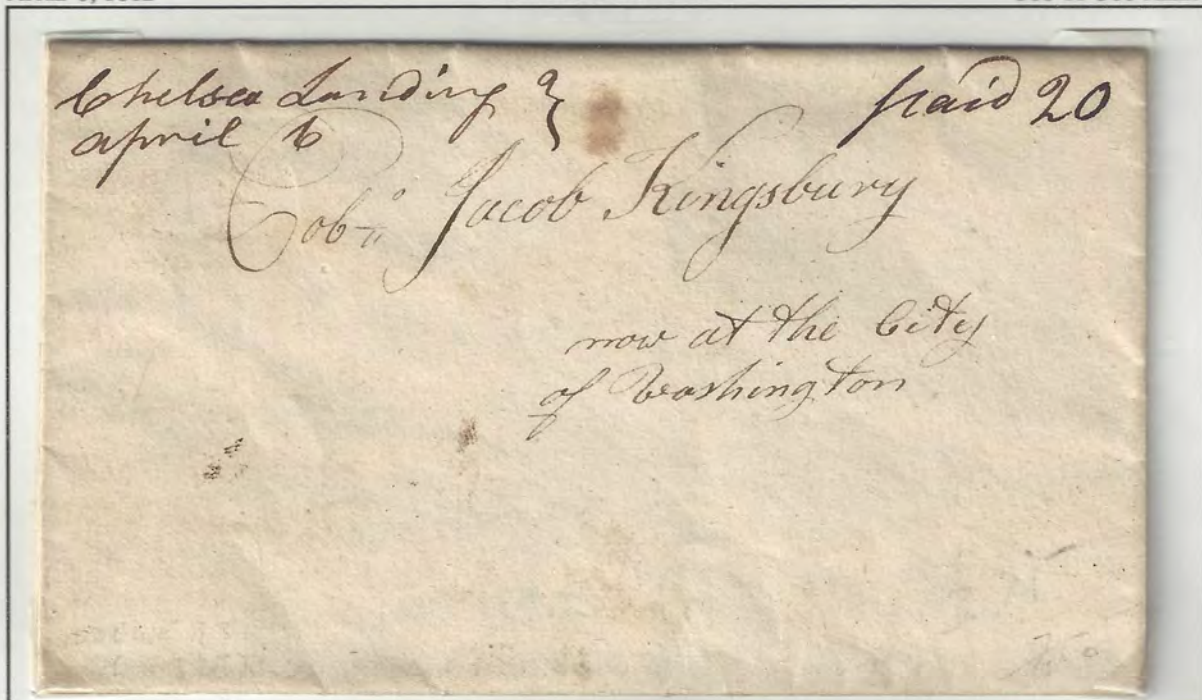 Chelsea Landing }
april 6
paid 20
Colo. Jacob Kingsbury
now at the City
of Washington